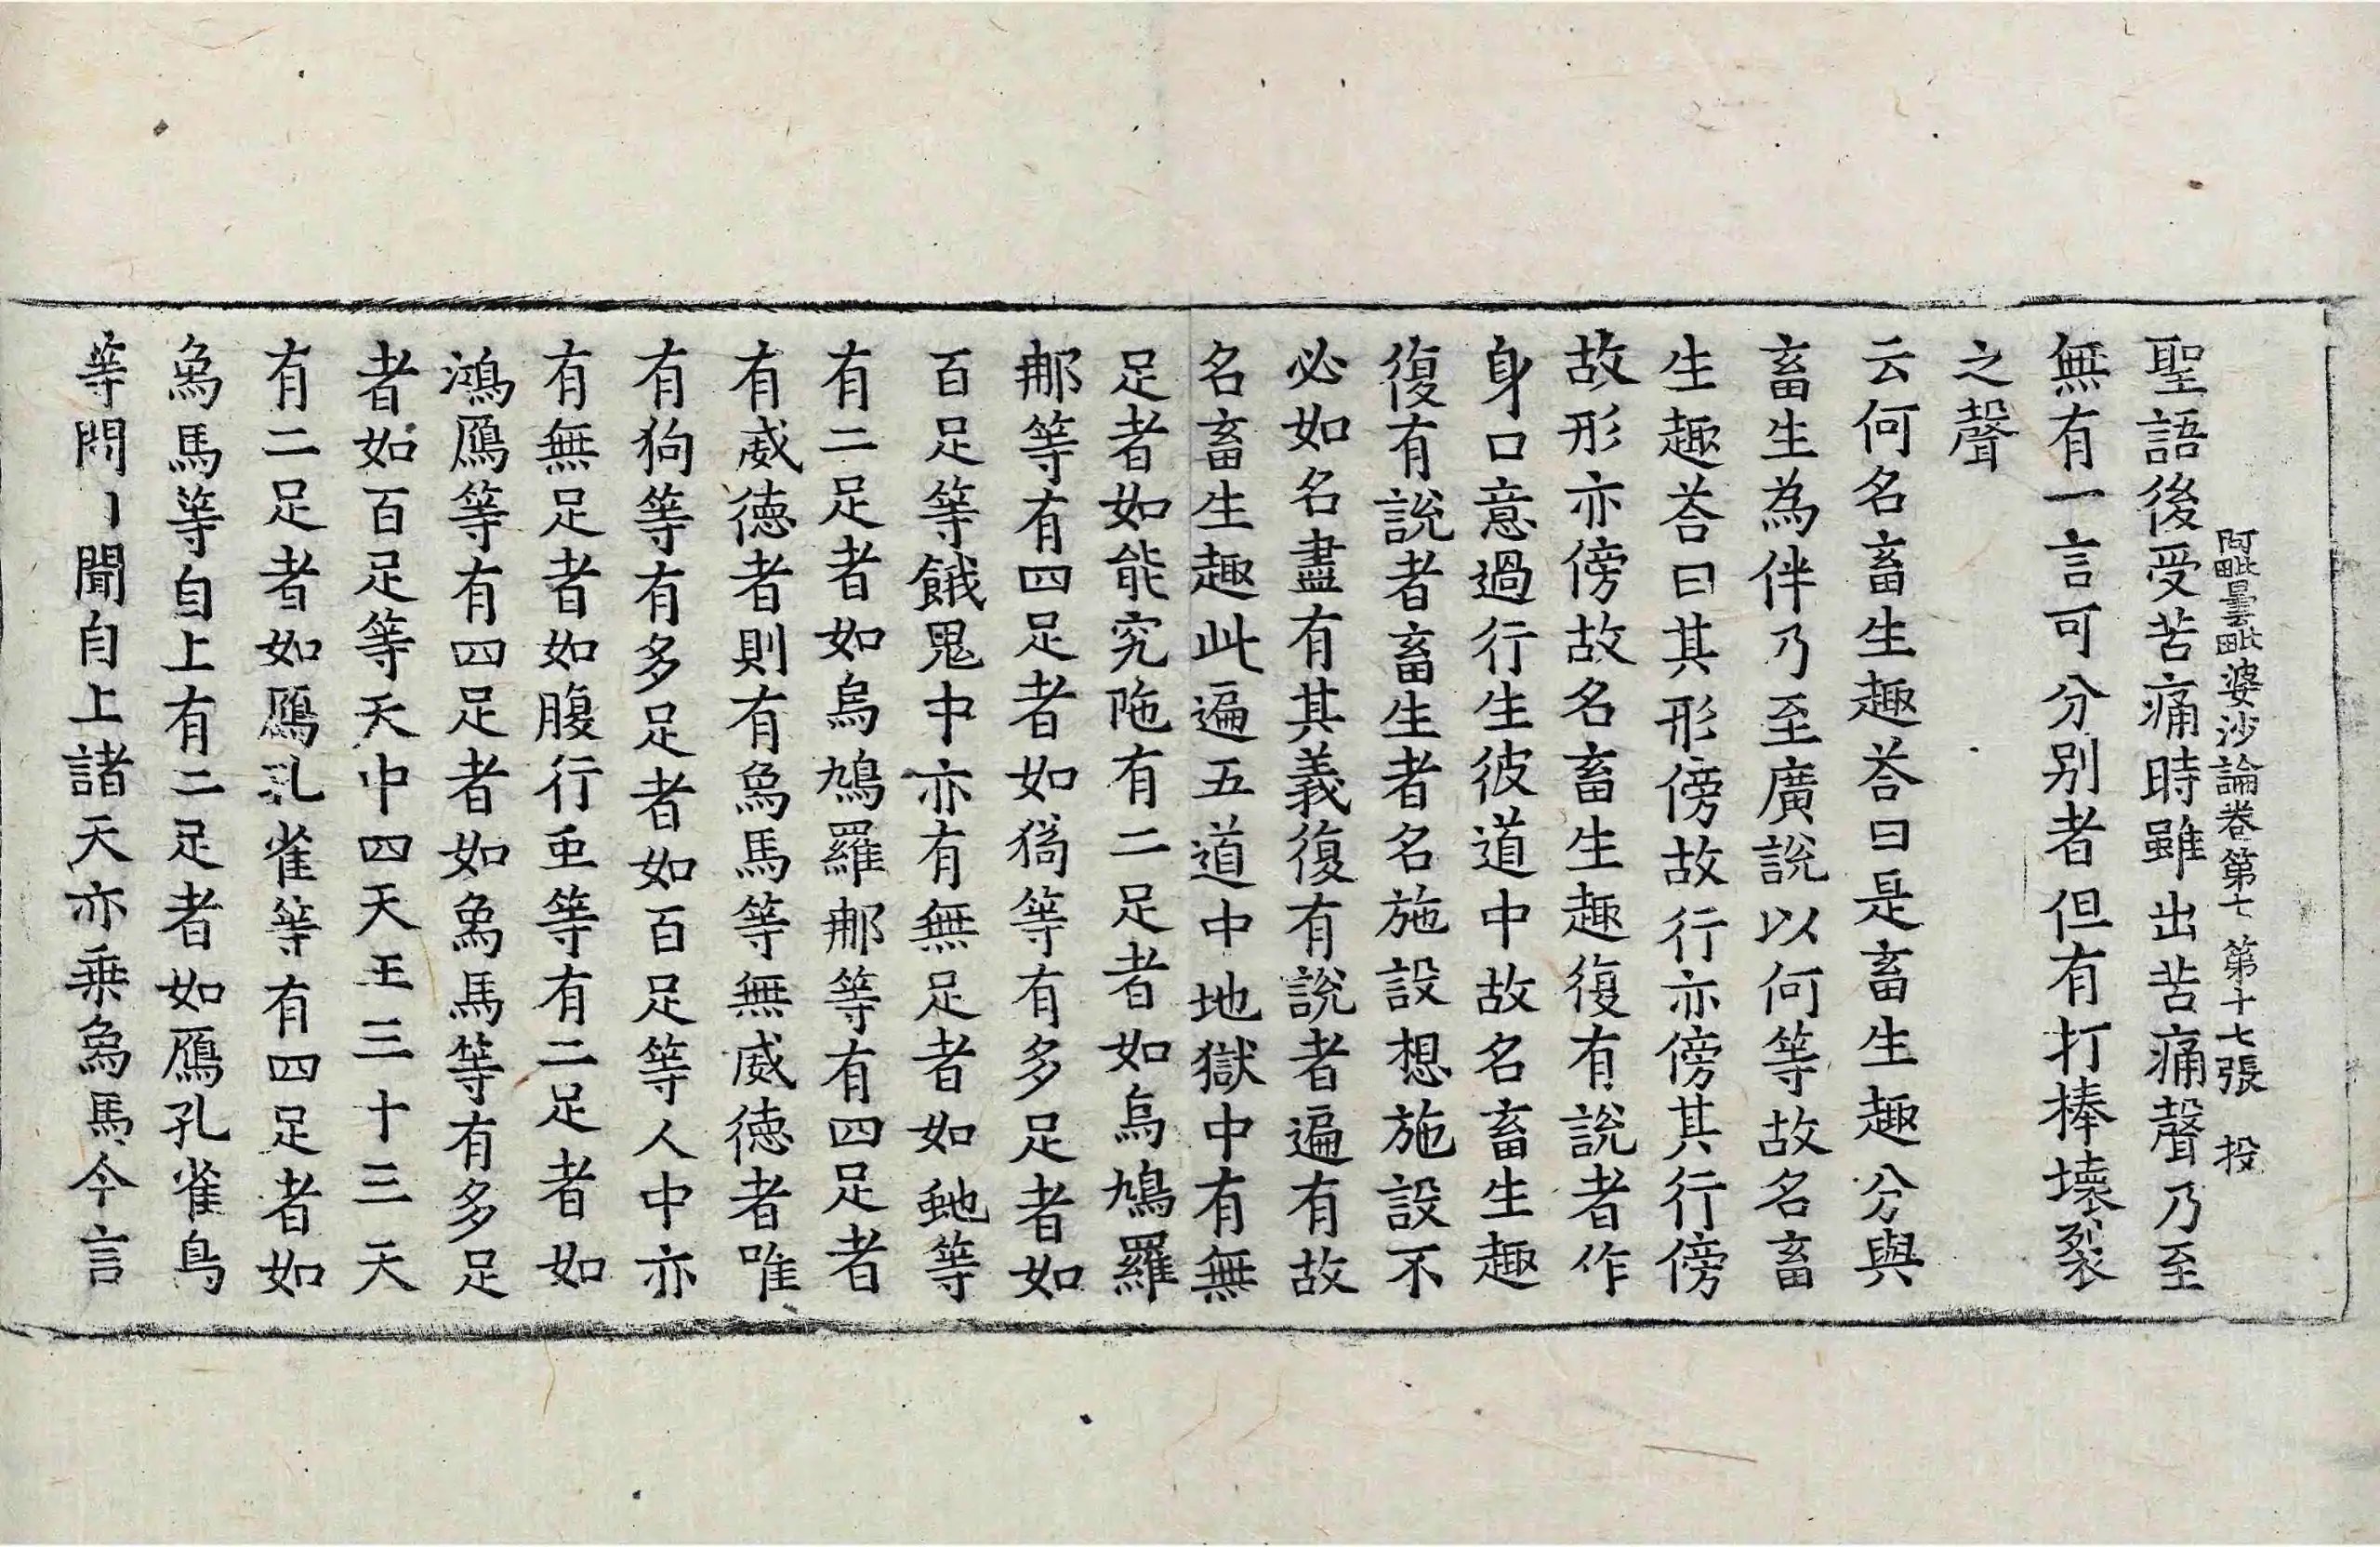 阿毗曇毗婆沙論卷第七　第十七張　投
聖語後受苦痛時雖出苦痛聲乃至
無有一言可分別者但有打棒壞裂
之聲
云何名畜生趣荅曰是畜生趣分與
畜生為伴乃至廣說以何等故名畜
生趣荅曰其形傍故行亦傍其行傍
故形亦傍故名畜生趣復有說者作
身口意過行生彼道中故名畜生趣
復有說者畜生者名施設想施設不
必如名盡有其義復有說者遍有故
名畜生趣此遍五道中地獄中有無
足者如能究陁有二足者如烏鳩羅
䣀等有四足者如㺃等有多足者如
百足等餓鬼中亦有無足者如虵等
有二足者如烏鳩羅䣀等有四足者
有威德者則有象馬等無威德者唯
有狗等有多足者如百足等人中亦
有無足者如腹行䖝等有二足者如
鴻鴈等有四足者如象馬等有多足
者如百足等天中四天王三十三天
有二足者如鴈孔雀等有四足者如
象馬等自上有二足者如鴈孔雀鳥
等問丨聞自上諸天亦乗象馬今言